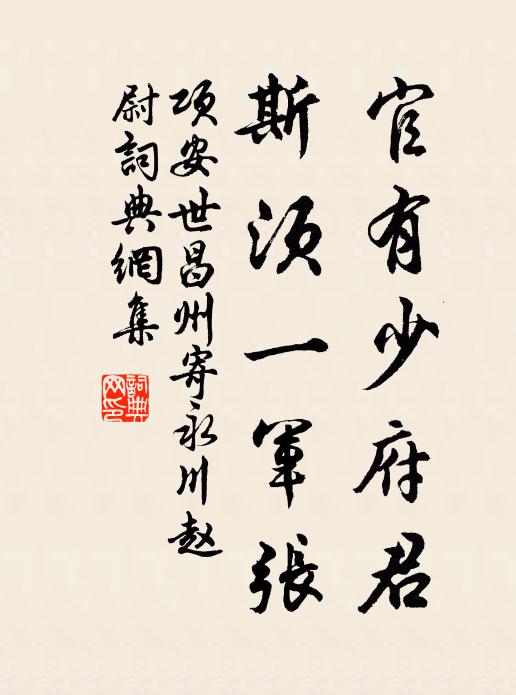 官有少府君
斯須一軍張
項安世昌州寄永川赵
尉詞典網集
詞典
网印